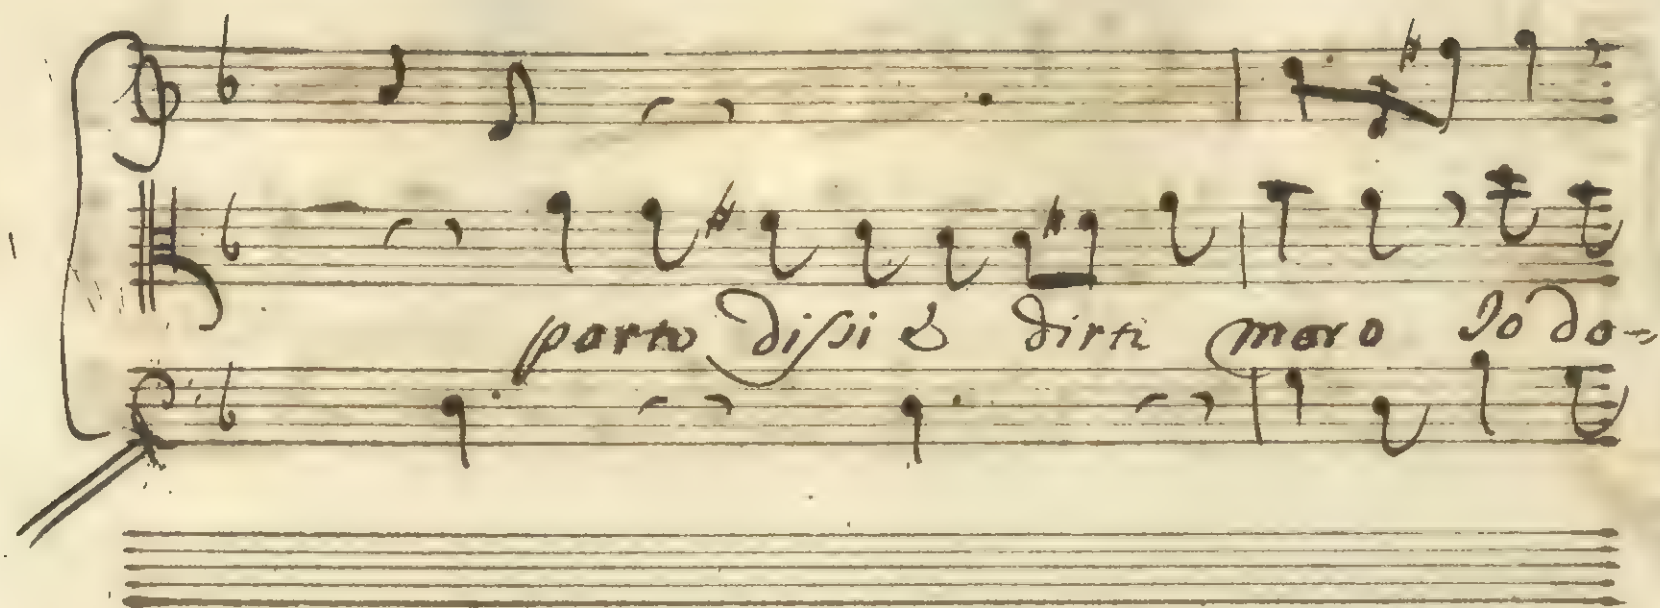 parto dissi & dirti moro Io do-